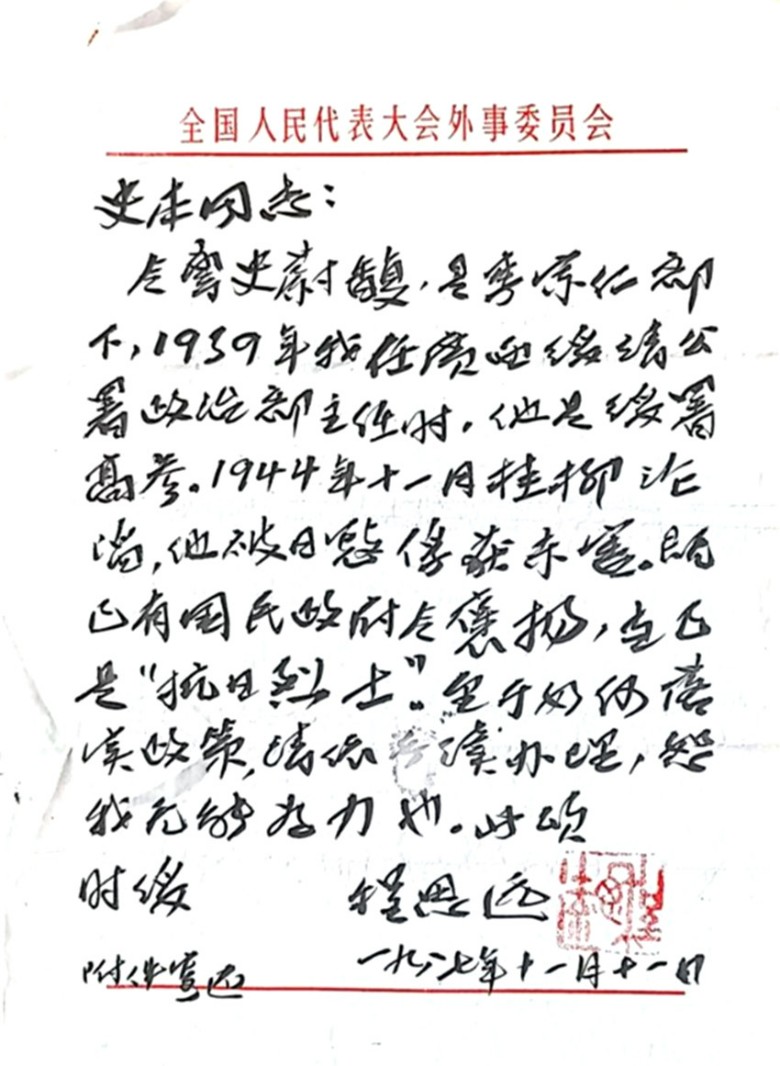 全国人民代表大会外事委员会
史本同志：
令尊史蔚馥，是李宗仁部
下，1939年我任广西绥靖公
署政治部主任时，他是绥署
高参。1944年十一月桂柳沦
陷，他被日寇俘获杀害。既
已有国民政府令褒扬，应已
是“抗日烈士”。至于如何落
实政策，请依手续办理，恕
我无能为力也。此颂
时绥 程思远
附件寄还 一九八七年十一月十一日